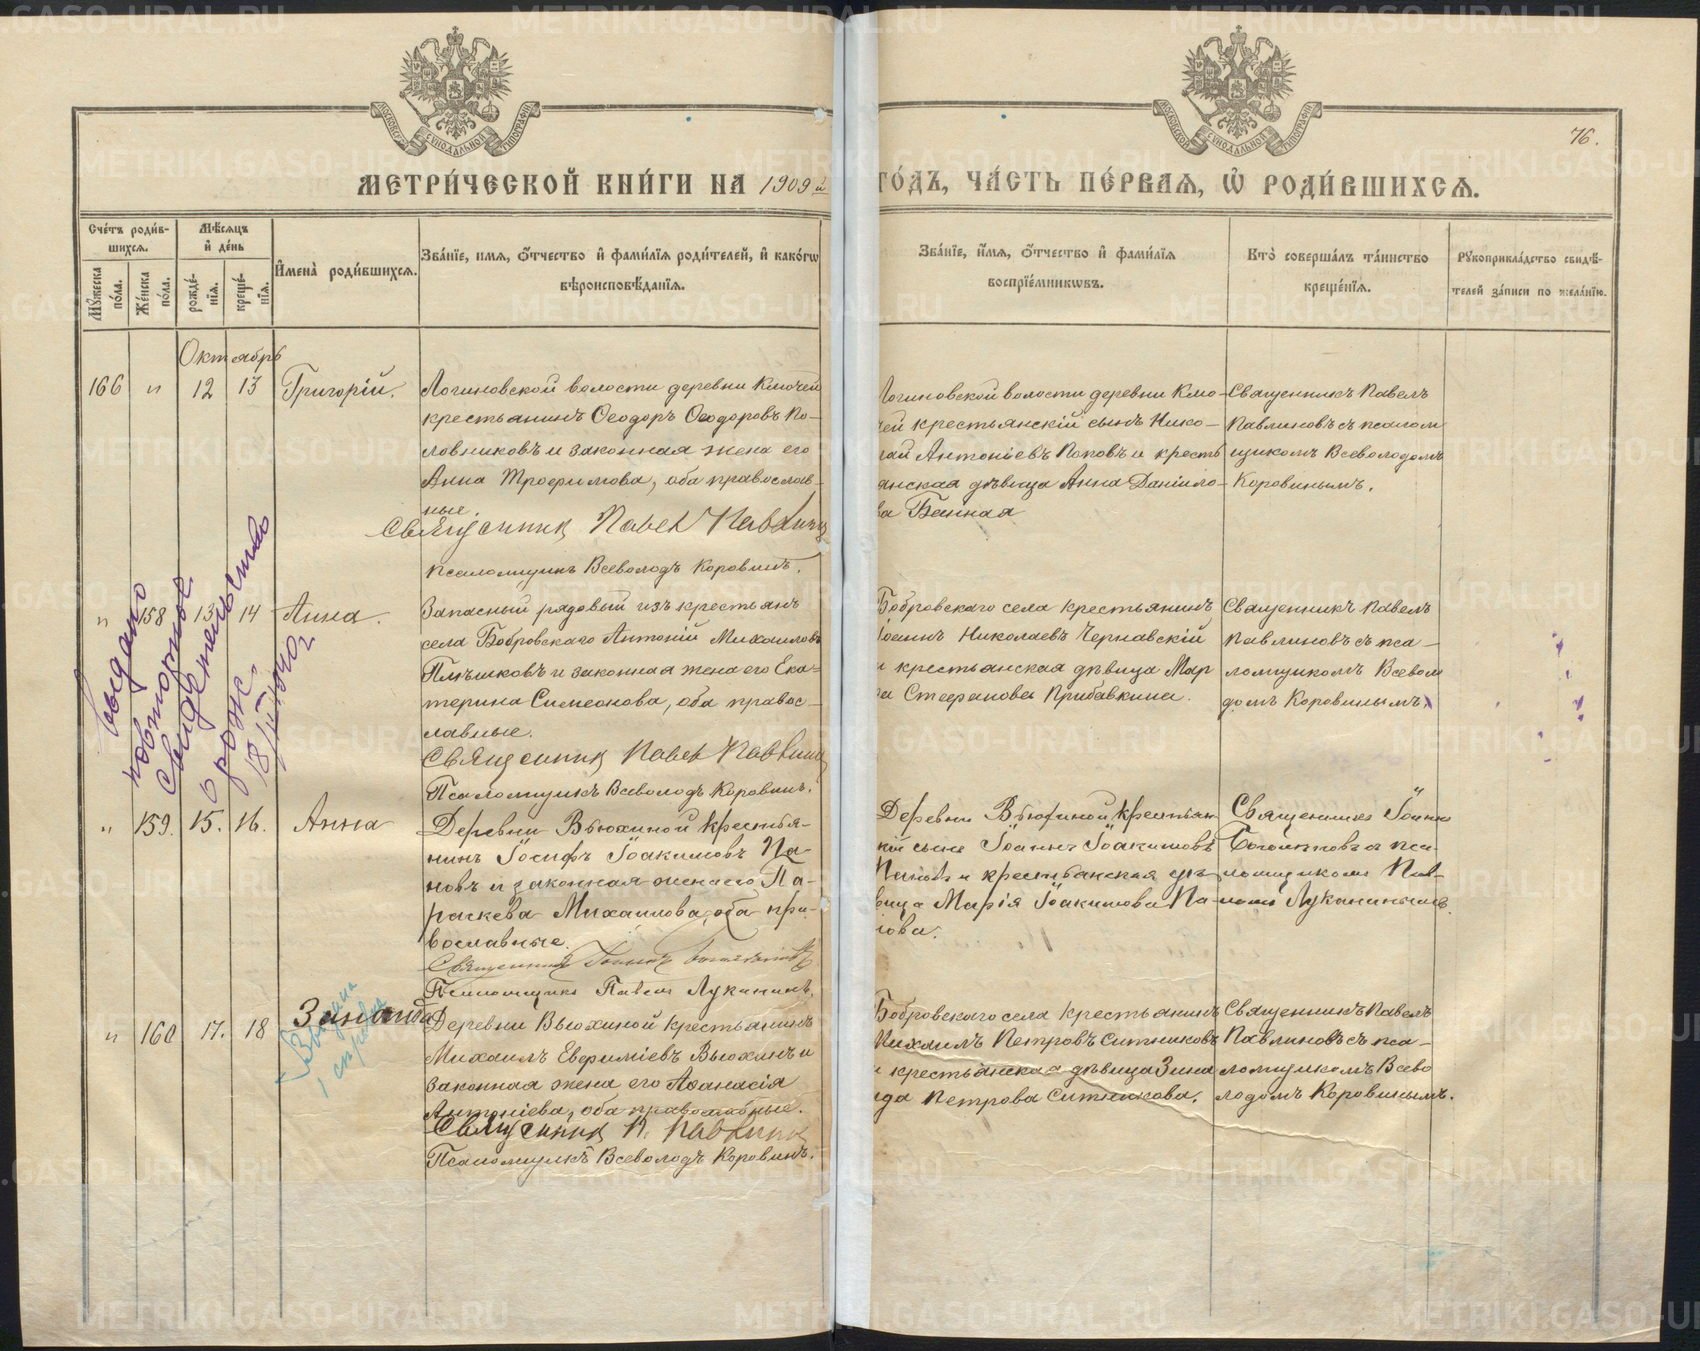 76.
МЕТРИ́ЧЕСКОЙ КНИ́ГИ НА 1909й
ГО́ДЪ, ЧА́СТЬ ПЕ́РВАЯ, Ѡ҆ РОДИ́ВШИХСѦ.
Счётъ роди́в-
шихсѧ.
Мꙋ́жеска по́ла.
Же́нска по́ла.
Мѣ́сѧцъ
и҆ де́нь
рожде́-
нїѧ.
креще́-
нїѧ.
И҆мена̀ роди́вшихсѧ.
Зва́нїе, имѧ, ѻ҆́тчество и҆ фами́лїѧ роди́телей, и҆ како́гѡ
вѣроисповѣ́данїѧ.
Зва́нїе, и҆́мѧ, ѻ҆́тчество и҆ фами́лїѧ
воспрїе́мникѡвъ.
Кто̀ соверша́лъ та́инство
креще́нїѧ.
Рꙋкоприкла́дство свидѣ́-
телей за́писи по жела́нїю.
Октябрь
166 „ 12 13 Григорій.
Логиновской волости деревни Ключей
крестьянинъ Ѳеодоръ Ѳеодоровъ По-
ловниковъ и законная жена его
Анна Трофимова, оба православ-
ные.
Священникъ Павелъ Павлиновъ
Псаломщикъ Всеволодъ Коровинъ.
Логиновской волости деревни Клю-
чей крестьянскій сынъ Нико-
лай Антоніевъ Поповъ и кресть
янская дѣвица Анна Данило-
ва Банная
Священникъ Павелъ
Павлиновъ съ псалом
щикомъ Всеволодомъ
Коровинымъ.
„ 158 13 14 Анна.
Запасный рядовый изъ крестьянъ
села Бобровскаго Антоній Михаиловъ
Плѣшковъ и законная жена его Ека-
терина Симеонова, оба правос-
лавные.
Священникъ Павелъ Павлиновъ
Псаломщикъ Всеволодъ Коровинъ.
Бобровскаго села крестьянинъ
Іоаннъ Николаевъ Чернавскій
и крестьянская дѣвица Мар
ѳа Стефанова Прибавкина.
Священникъ Павелъ
Павлиновъ съ пса-
ломщикомъ Всеволо
домъ Коровинымъ
выдано
повторное
свидетельство
о рожс.
„ 159. 15. 16. Анна
Деревни Вьюхиной крестья-
нинъ Іосифъ Іоакимовъ Па-
новъ и законная жена его Па-
раскева Михаилова, оба пра-
вославные.
Священникъ Іоаннъ Богомоловъ
Псаломщикъ Павелъ Луканинъ.
Деревни Вьюхиной крестьян
кій сынъ Іоаннъ Іоакимовъ
Пановъ и крестьянская дѣ
вица Марія Іоакимова Па-
нова.
Священникъ Іоаннъ
Богомоловъ съ пса-
ломщикомъ Пав-
ломъ Луканинымъ.
„ 160 17. 18 Зинаида
Выдана
1 справка
Деревни Вьюхиной крестьянинъ
Михаилъ Евфиміевъ Вьюхинъ и
законная жена его Аѳанасія
Антоніева, оба православные.
Священникъ П. Павлиновъ
Псаломщикъ Всеволодъ Коровинъ.
Бобровскаго села крестьянинъ
Михаилъ Петровъ Ситниковъ
и крестьянская дѣвица Зина
ида Петрова Ситникова.
Священникъ Павелъ
Павлиновъ съ пса-
ломщикомъ Всево
лодомъ Коровинымъ.